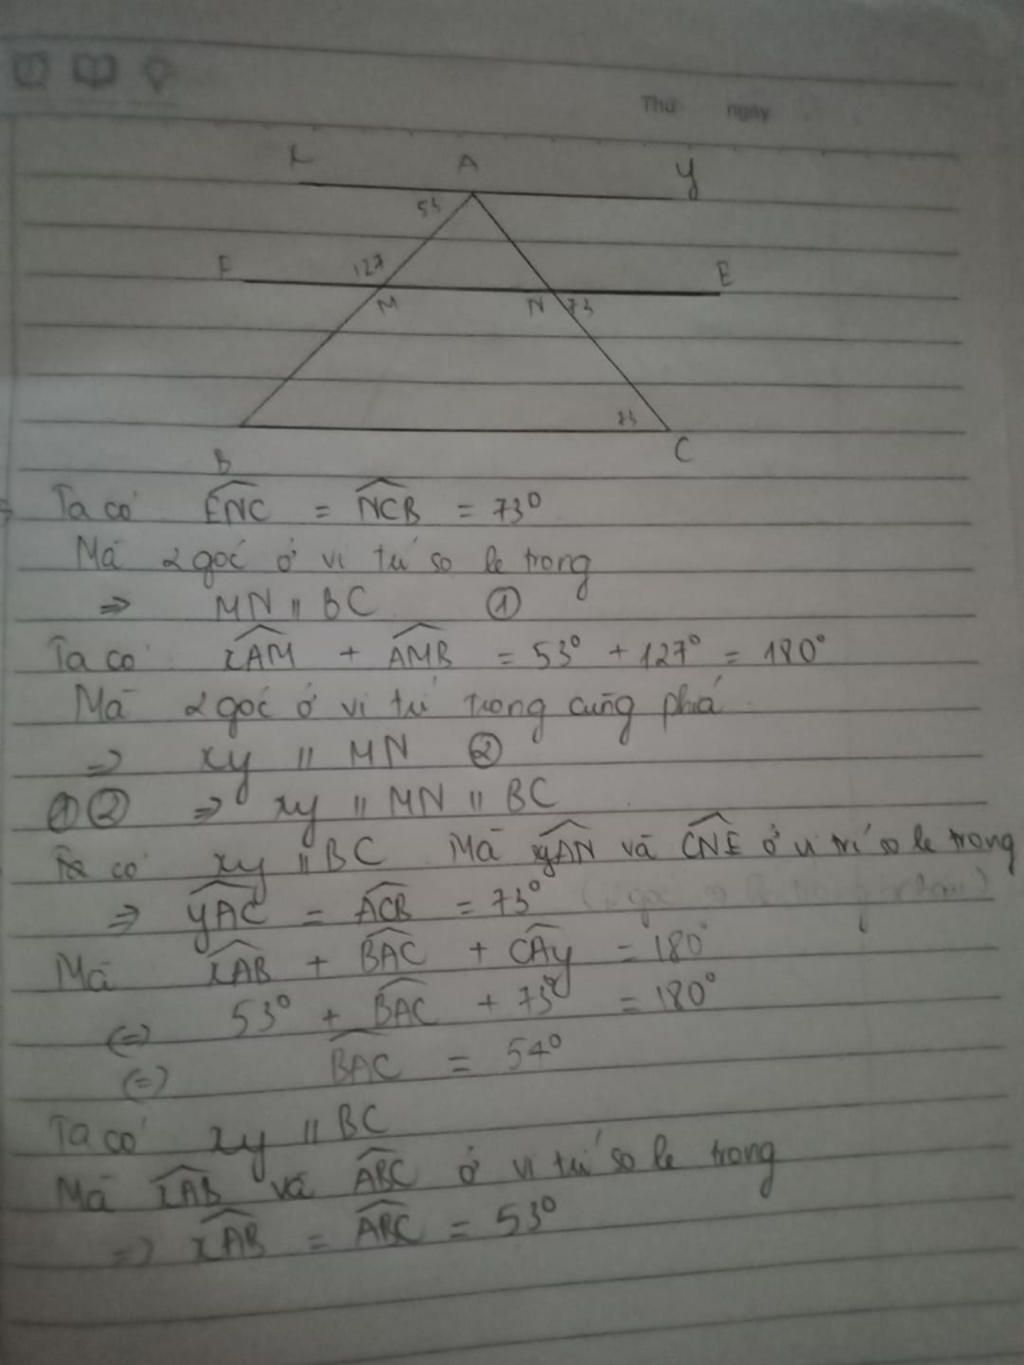 Thứ ngày
x A y
53
F 127 E
M N 73
73
B C
Ta có ENC = NCB = 73⁰
Mà 2 góc ở vị trí so le trong
=> MN // BC ①
Ta có xAM + AMB = 53⁰ + 127⁰ = 180⁰
Mà 2 góc ở vị trí trong cùng phía
=> xy // MN ②
① ② => xy // MN // BC
Ta có xy // BC Mà yAN và CNE ở vị trí so le trong
=> yAC = ACB = 73⁰
Mà xAB + BAC + CAy = 180⁰
(=) 53⁰ + BAC + 73⁰ = 180⁰
(=) BAC = 54⁰
Ta có xy // BC
Mà xAB và ABC ở vị trí so le trong
=> xAB = ABC = 53⁰